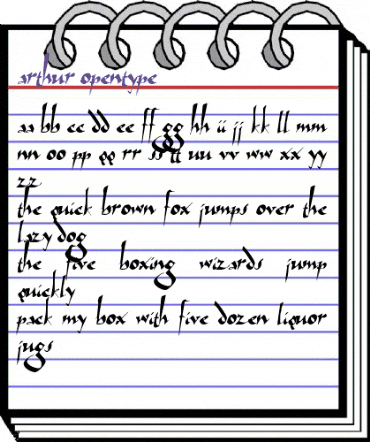 arthur opentype
aa bb cc dd ee ff gg hh ii jj kk ll mm
nn oo pp qq rr ss tt uu vv ww xx yy
zz
the quick brown fox jumps over the
lazy dog
the five boxing wizards jump
quickly
pack my box with five dozen liquor
jugs